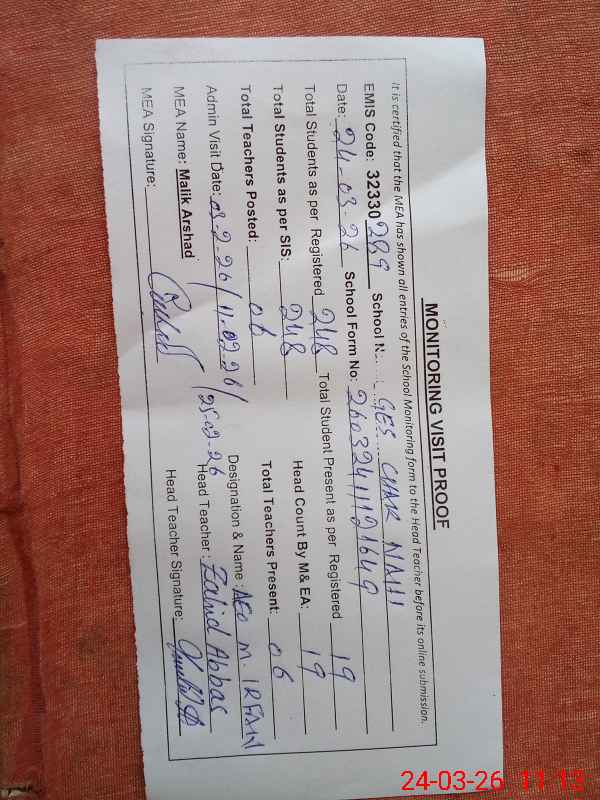 MONITORING VISIT PROOF
It is certified that the MEA has shown all entries of the School Monitoring form to the Head Teacher before its online submission.
EMIS Code: 32330289 School N... GES CHAK NAHI
Date: 24-03-26 School Form No: 26032411121649
Total Students as per Registered 248 Total Student Present as per Registered 19
Total Students as per SIS: 248 Head Count By M& EA: 19
Total Teachers Posted: 06 Total Teachers Present: 06
Admin Visit Date: 03-2-26/11-02-26/ Designation & Name: AEO M. IRFAN
/25-02-26
MEA Name: Malik Arshad Head Teacher: Zahid Abbas
MEA Signature: Head Teacher Signature:
24-03-26 11:13